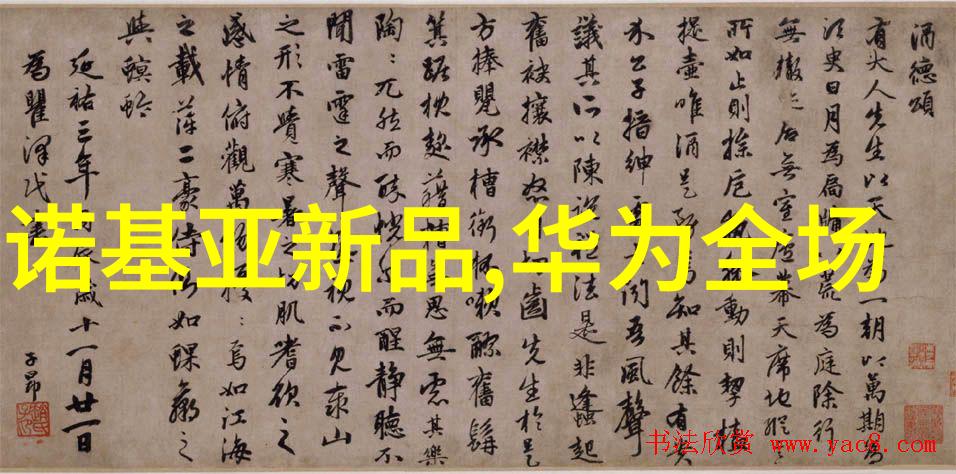 酒德頌
有大人先生以天一朝以萬期為
須臾日月為扃牖荒為庭除行
無轍迹居無室廬幕天席地縱
所如止則操卮動則挈榼
提壺唯酒是焉知其餘有貴
公子搢紳聞吾風聲
議其所以陳說禮法是非蜂起
奮袂攘襟怒切齒先生於是
方捧甖承槽銜杯漱醪奮髯
箕踞枕麴藉糟無思無慮其樂
陶〻兀然而醉恍爾而醒靜聽不
聞雷霆之聲視不見泰山
之形不覺寒暑之切肌嗜欲之
感情俯觀萬〻焉如江海
之載萍二豪侍側如蜾蠃之
與螟蛉
延祐三年歲十一月廿一日
為瞿澤
子昂
诺基亚新品,华为全场
书法欣赏 www.yac8.com